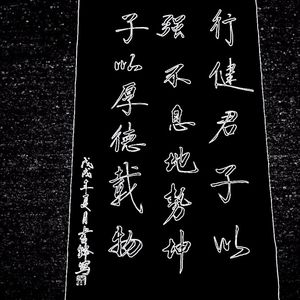 行健君子以
强不息地势坤
子以厚德载物
戊戌年夏月